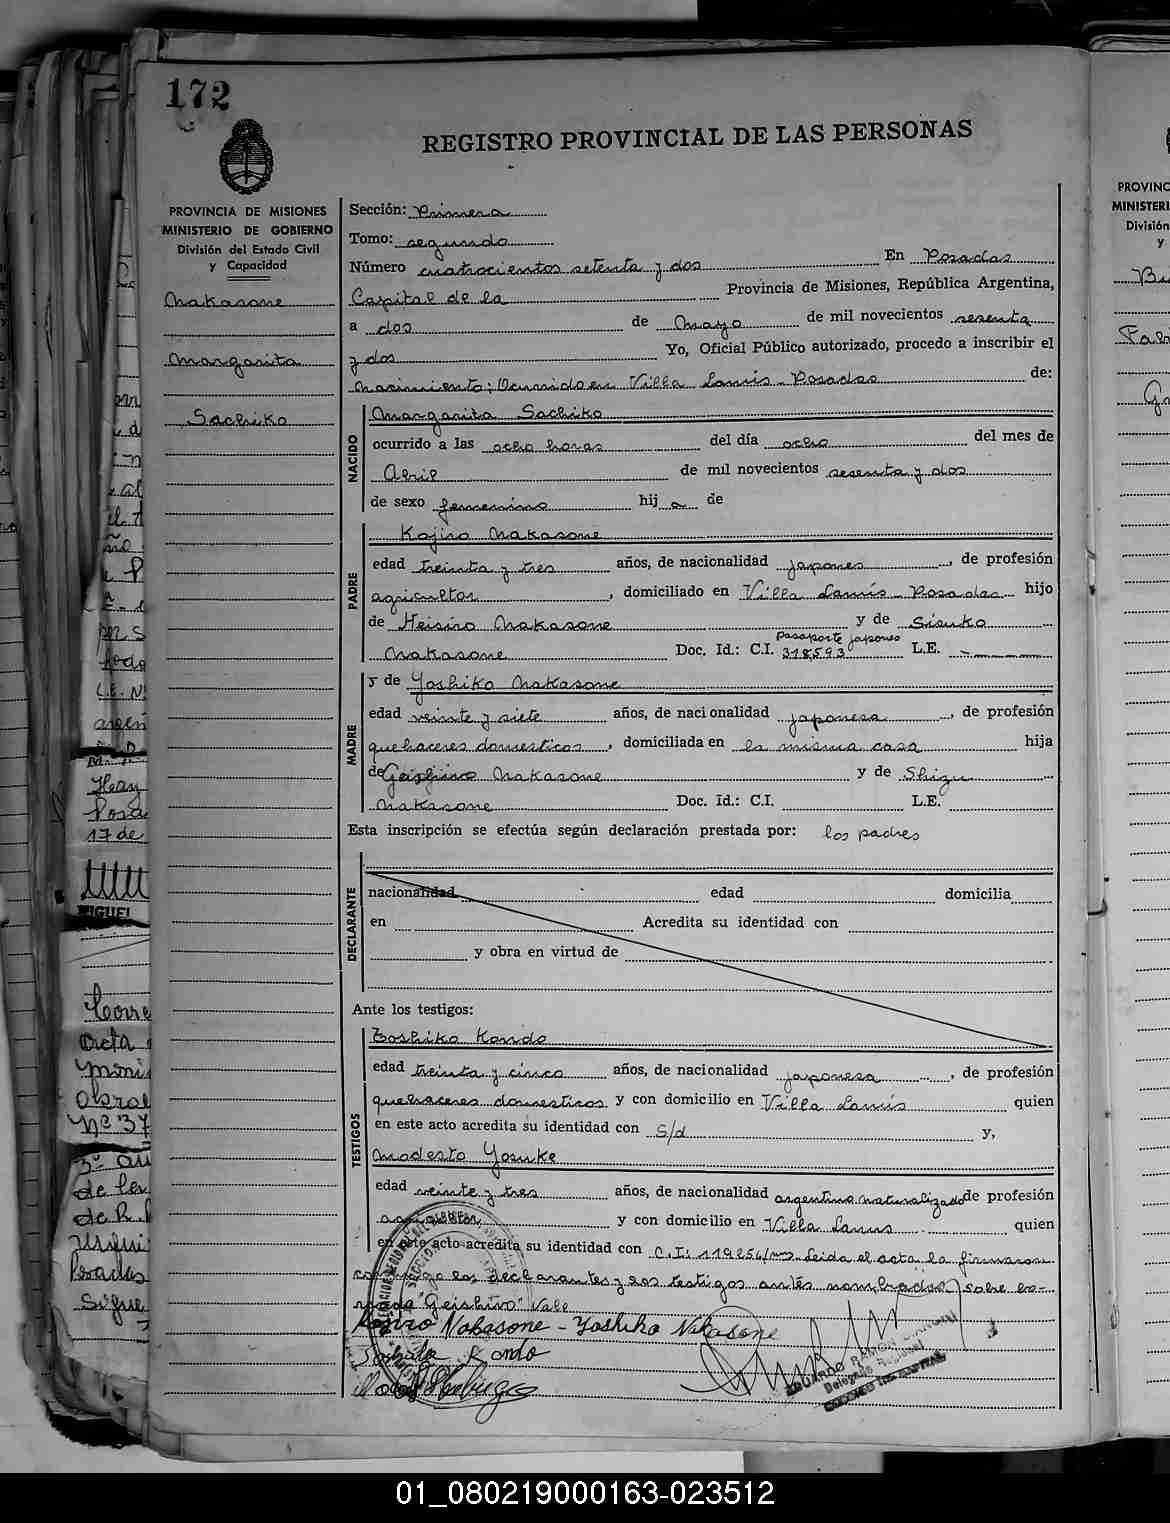 172
REGISTRO PROVINCIAL DE LAS PERSONAS
PROVINCIA DE MISIONES
MINISTERIO DE GOBIERNO
División del Estado Civil
y Capacidad
Nakasone
Margarita
Sachiko
Sección: Primera
Tomo: segundo
Número cuatrocientos setenta y dos En Posadas
Capital de la Provincia de Misiones, República Argentina,
a dos de Mayo de mil novecientos sesenta
y dos Yo, Oficial Público autorizado, procedo a inscribir el
nacimiento; Ocurrido en Villa Lanús - Posadas de:
NACIDO
Margarita Sachiko
ocurrido a las ocho horas del día ocho del mes de
Abril de mil novecientos sesenta y dos
de sexo femenino hij a de
PADRE
Kojiro Nakasone
edad treinta y tres años, de nacionalidad japones, de profesión
agricultor, domiciliado en Villa Lanús - Posadas hijo
de Heisiro Nakasone y de Sisuko
Nakasone Doc. Id.: C.I. Pasaporte japones 318593 L.E. —
MADRE
y de Yoshiko Nakasone
edad veinte y siete años, de nacionalidad japonesa, de profesión
quehaceres domesticos, domiciliada en la misma casa hija
de Geishivo Nakasone y de Shizu
Nakasone Doc. Id.: C.I. L.E.
Esta inscripción se efectúa según declaración prestada por: los padres
DECLARANTE
nacionalidad edad domicilia
en Acredita su identidad con
y obra en virtud de
Ante los testigos:
TESTIGOS
Toshiko Kondo
edad treinta y cinco años, de nacionalidad japonesa, de profesión
quehaceres domesticos y con domicilio en Villa Lanús quien
en este acto acredita su identidad con S/d y,
Modesto Yosuke
edad veinte y tres años, de nacionalidad argentino naturalizado de profesión
agricultor, y con domicilio en Villa Lanus quien
en este acto acredita su identidad con C.I: 119256/ Leida el acta la firmaron
conmigo los declarantes y los testigos antes nombrados, sobre bo-
rrado "Geishivo" Vale
Kojiro Nakasone - Yoshiko Nakasone
Kondo
EDUARDO RAMON
Delegado Regional
PROVINC
MINISTERI
División
y
Hay
Posa
17 de
MIGUEL
Corre
acta
mini
Nº 37
de
Posadas
Sigue
01_080219000163-023512